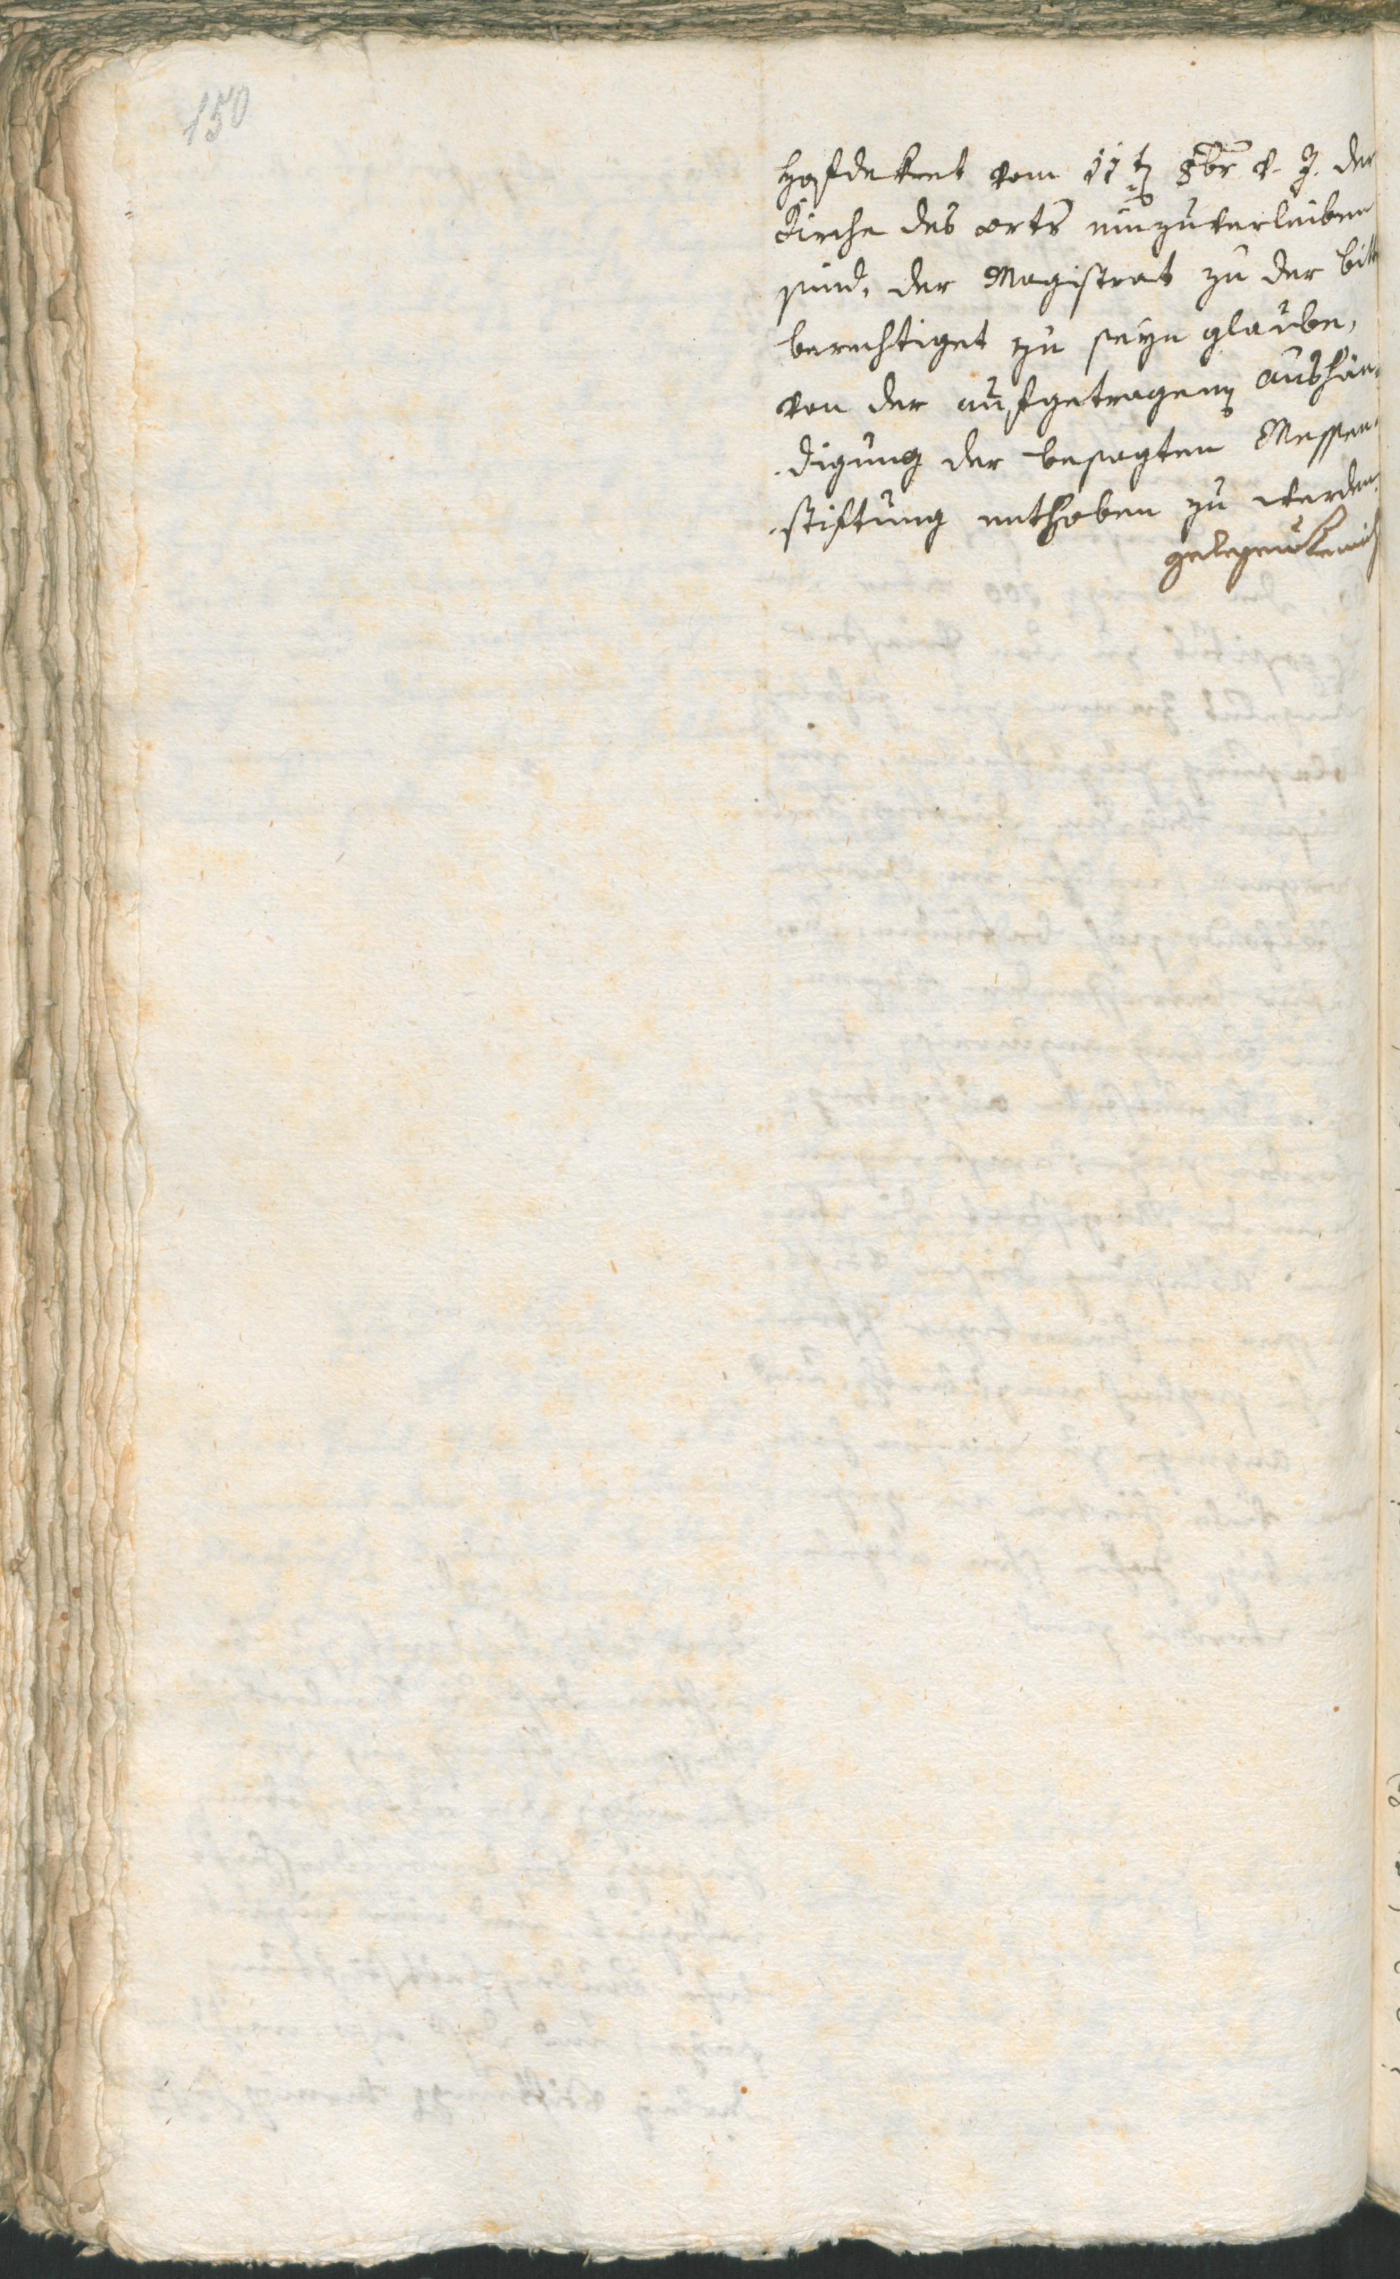 150
Hofdekret vom 11t 8br v. J. der
Kirche des orts einzuverleiben
sind, der Magistrat zu der bitte
berechtiget zu seyn glaube,
von der aufgetragenen aushän-
digung der besagten Messen-
stiftung enthoben zu werden.